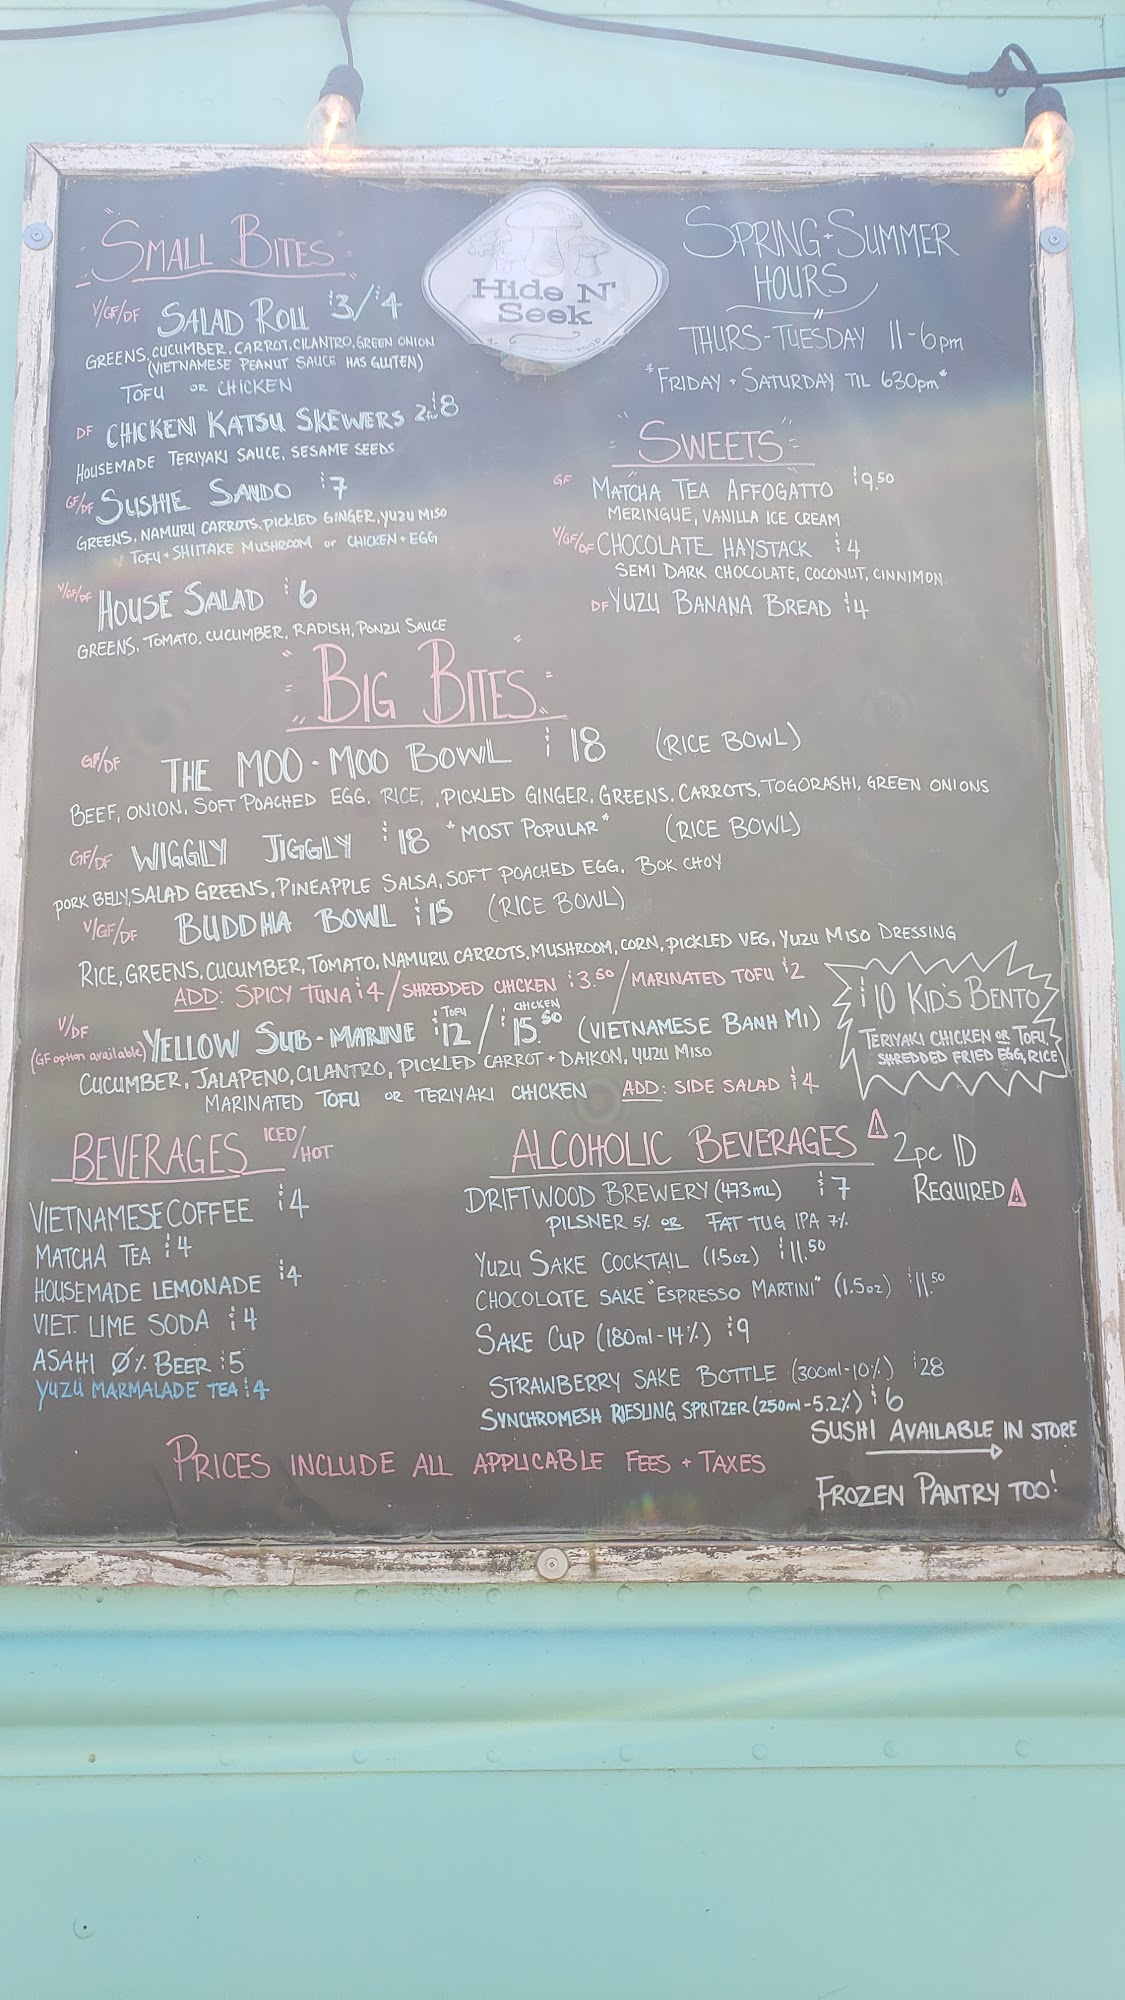 "SMALL BITES"
V/GF/DF SALAD ROLL $3/$4
GREENS, CUCUMBER, CARROT, CILANTRO, GREEN ONION
(VIETNAMESE PEANUT SAUCE HAS GLUTEN)
TOFU OR CHICKEN
DF CHICKEN KATSU SKEWERS $8
HOUSEMADE TERIYAKI SAUCE, SESAME SEEDS
GF/DF SUSHIE SANDO $7
GREENS, NAMURU CARROTS, PICKLED GINGER, YUZU MISO
TOFU + SHIITAKE MUSHROOM or CHICKEN + EGG
V/GF/DF HOUSE SALAD $6
GREENS, TOMATO, CUCUMBER, RADISH, PONZU SAUCE
Hide N'
Seek
SPRING + SUMMER
HOURS
THURS - TUESDAY 11-6pm
*FRIDAY + SATURDAY TIL 630pm*
"SWEETS"
GF MATCHA TEA AFFOGATTO $9.50
MERINGUE, VANILLA ICE CREAM
V/GF/DF CHOCOLATE HAYSTACK $4
SEMI DARK CHOCOLATE, COCONUT, CINNIMON
DF YUZU BANANA BREAD $4
"BIG BITES"
GF/DF THE MOO-MOO BOWL $18 (RICE BOWL)
BEEF, ONION, SOFT POACHED EGG, RICE, PICKLED GINGER, GREENS, CARROTS, TOGORASHI, GREEN ONIONS
GF/DF WIGGLY JIGGLY $18 *MOST POPULAR* (RICE BOWL)
PORK BELLY, SALAD GREENS, PINEAPPLE SALSA, SOFT POACHED EGG, BOK CHOY
V/GF/DF BUDDHA BOWL $15 (RICE BOWL)
RICE, GREENS, CUCUMBER, TOMATO, NAMURU CARROTS, MUSHROOM, CORN, PICKLED VEG, YUZU MISO DRESSING
ADD: SPICY TUNA $4 / SHREDDED CHICKEN $3.50 / MARINATED TOFU $2
V/DF (GF option available) YELLOW SUB-MARINE TOFU $12 / CHICKEN $15.50 (VIETNAMESE BANH MI)
CUCUMBER, JALAPENO, CILANTRO, PICKLED CARROT + DAIKON, YUZU MISO
MARINATED TOFU OR TERIYAKI CHICKEN ADD: SIDE SALAD $4
$10 KID'S BENTO
TERIYAKI CHICKEN OR TOFU,
SHREDDED FRIED EGG, RICE
BEVERAGES ICED/HOT
VIETNAMESE COFFEE $4
MATCHA TEA $4
HOUSEMADE LEMONADE $4
VIET. LIME SODA $4
ASAHI 0% BEER $5
YUZU MARMALADE TEA $4
ALCOHOLIC BEVERAGES ⚠ 2pc ID
REQUIRED ⚠
DRIFTWOOD BREWERY (473mL) $7
PILSNER 5% OR FAT TUG IPA 7%
YUZU SAKE COCKTAIL (1.5oz) $11.50
CHOCOLATE SAKE "ESPRESSO MARTINI" (1.5oz) $11.50
SAKE CUP (180ml-14%) $9
STRAWBERRY SAKE BOTTLE (300ml-10%) $28
SYNCHROMESH RIESLING SPRITZER (250ml-5.2%) $6
SUSHI AVAILABLE IN STORE
→
FROZEN PANTRY TOO!
PRICES INCLUDE ALL APPLICABLE FEES + TAXES